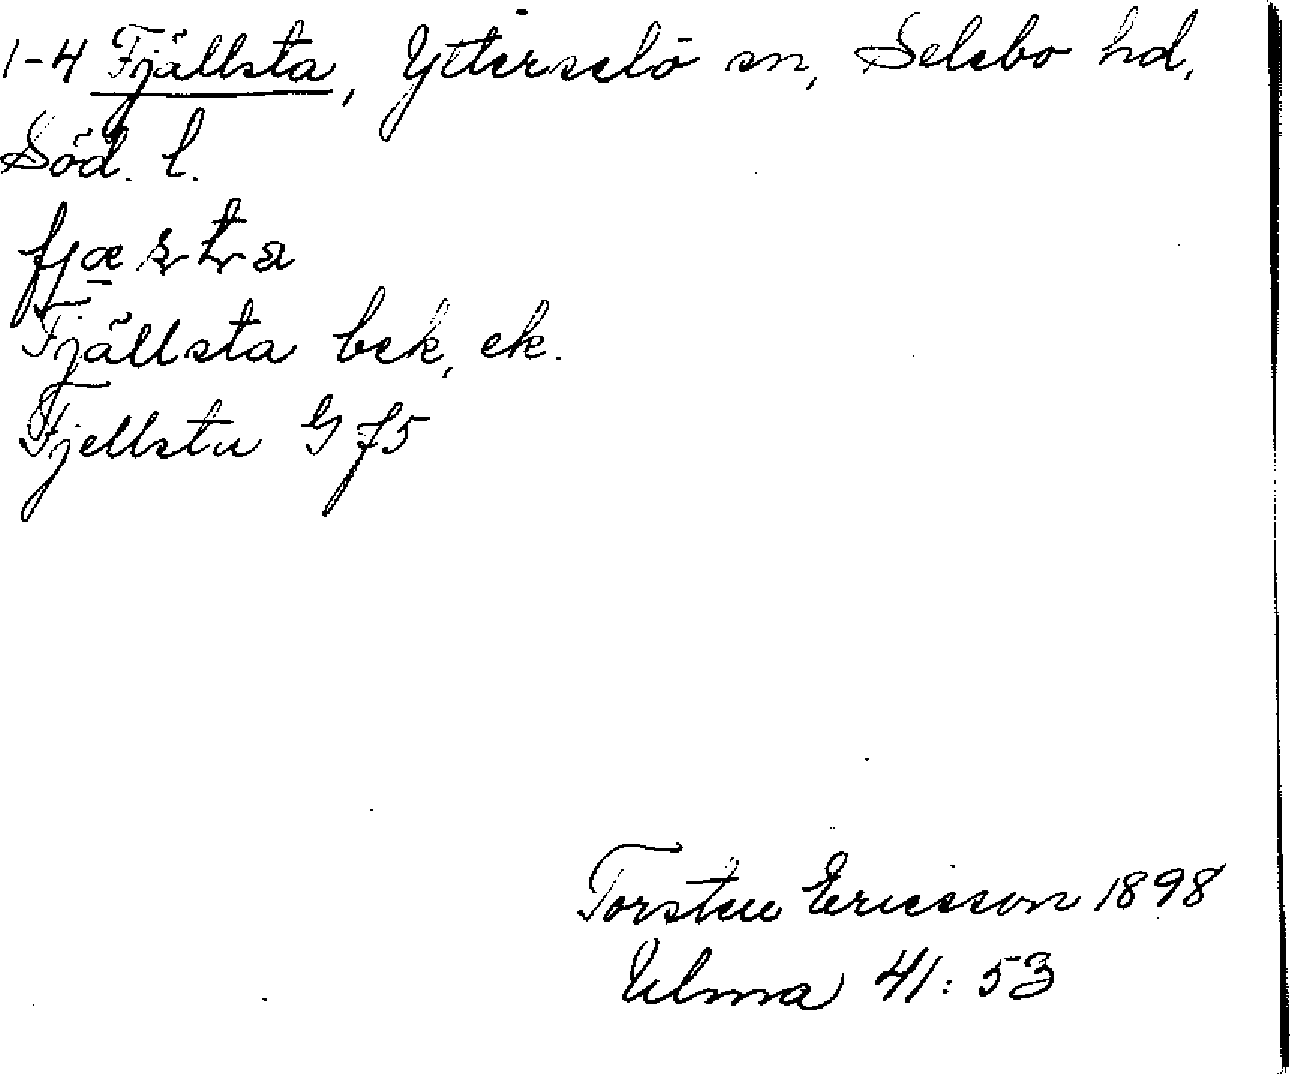 1-4 Fjällsta, Ytterselö sn, Selebo hd,
Söd. l.
Fjällsta bek, ek.
Fjellsta G f5
Torsten Ericsson 1898
Ulma 41:53